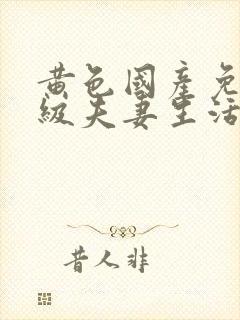 黄色國產免
級夫妻生活
昔人非